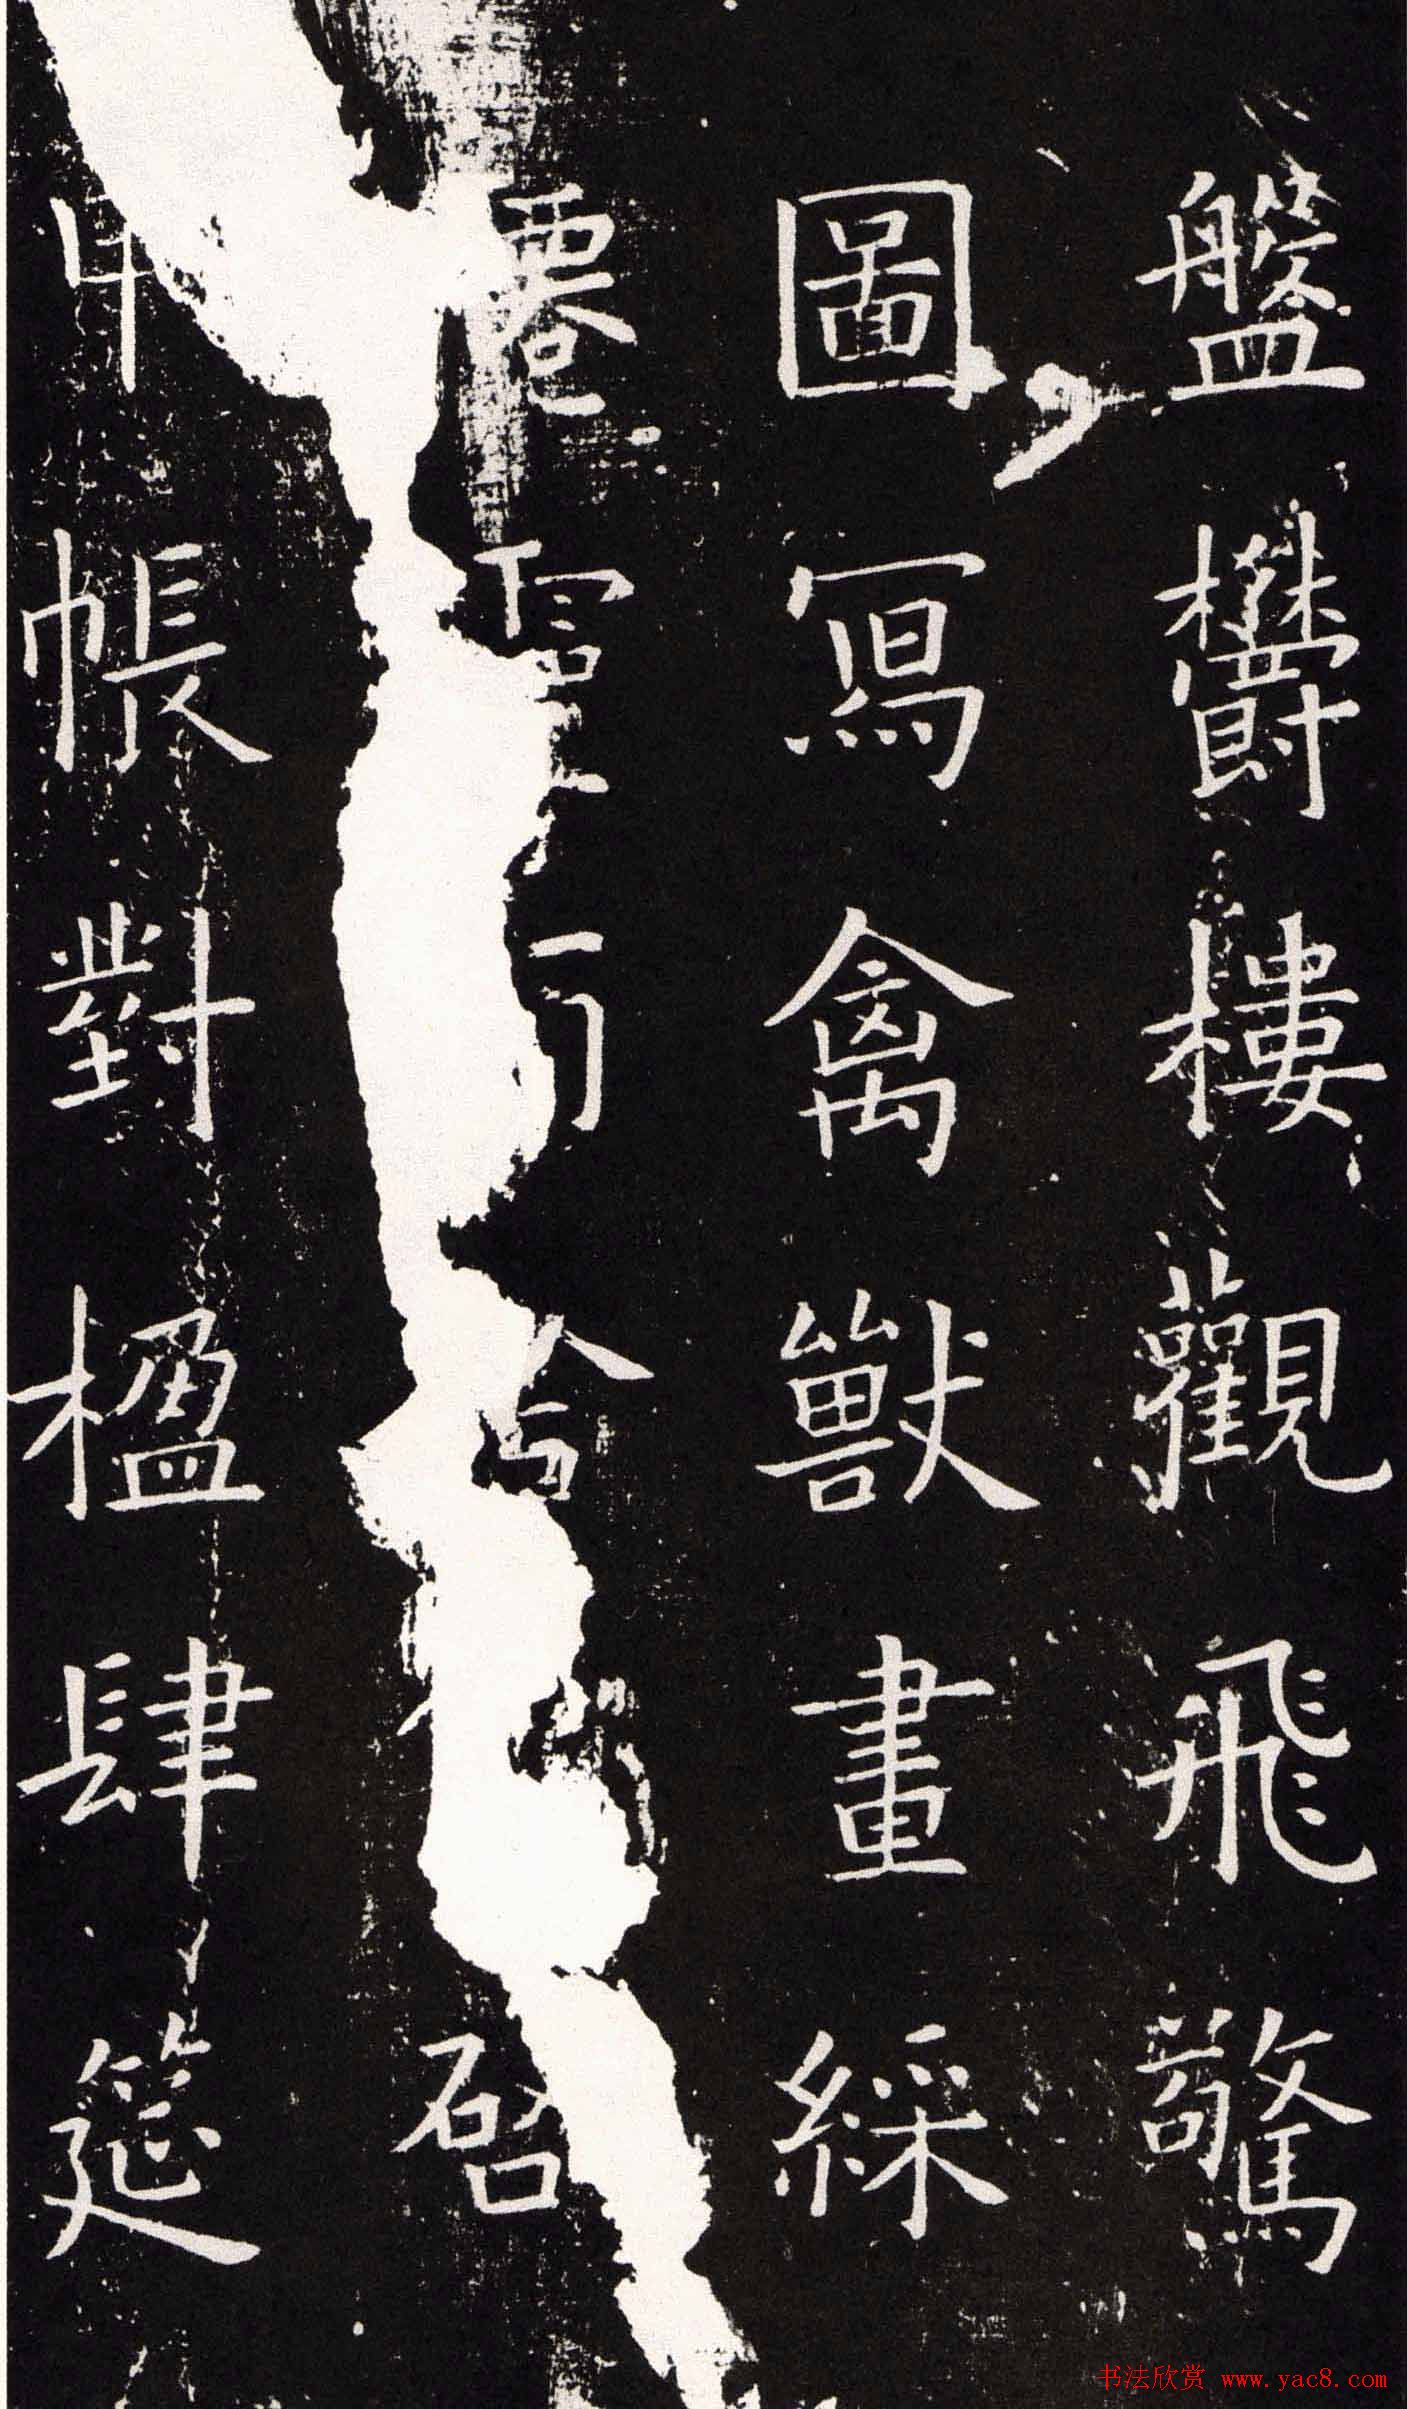 盤鬱樓觀飛驚
圖寫禽獸畫綵
僊靈丙舍啓
帳對楹肆筵
书法欣赏 www.yac8.com